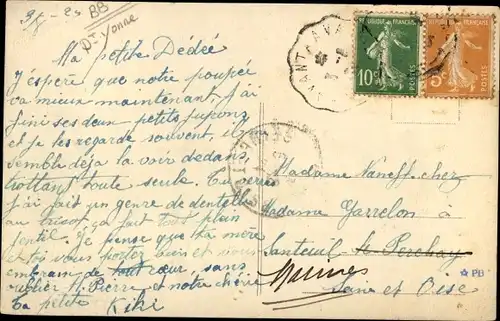 9/8-29
BB
Dt Yonne
Ma petite Dédée
J'espère que notre poupée
va mieux maintenant, j'ai
fini ses deux petits jupons
et je les regarde souvent, il
semble déjà la voir dedans,
trottant toute seule. Tu verras
j'ai fait un genre de dentelle
au tricot, ça fait tout plein
gentil. Je pense que ta mère
et toi vous portez bien et vous
embrasse de tout cœur, sans
oublier St Pierre et notre chérie
ta petite Kiki
REPUBLIQUE FRANÇAISE
10c POSTES
REPUBLIQUE FRANÇAISE
5c POSTES
Madame Naneff chez
Madame Garrelon à
Santeuil
Seine et Oise
PB